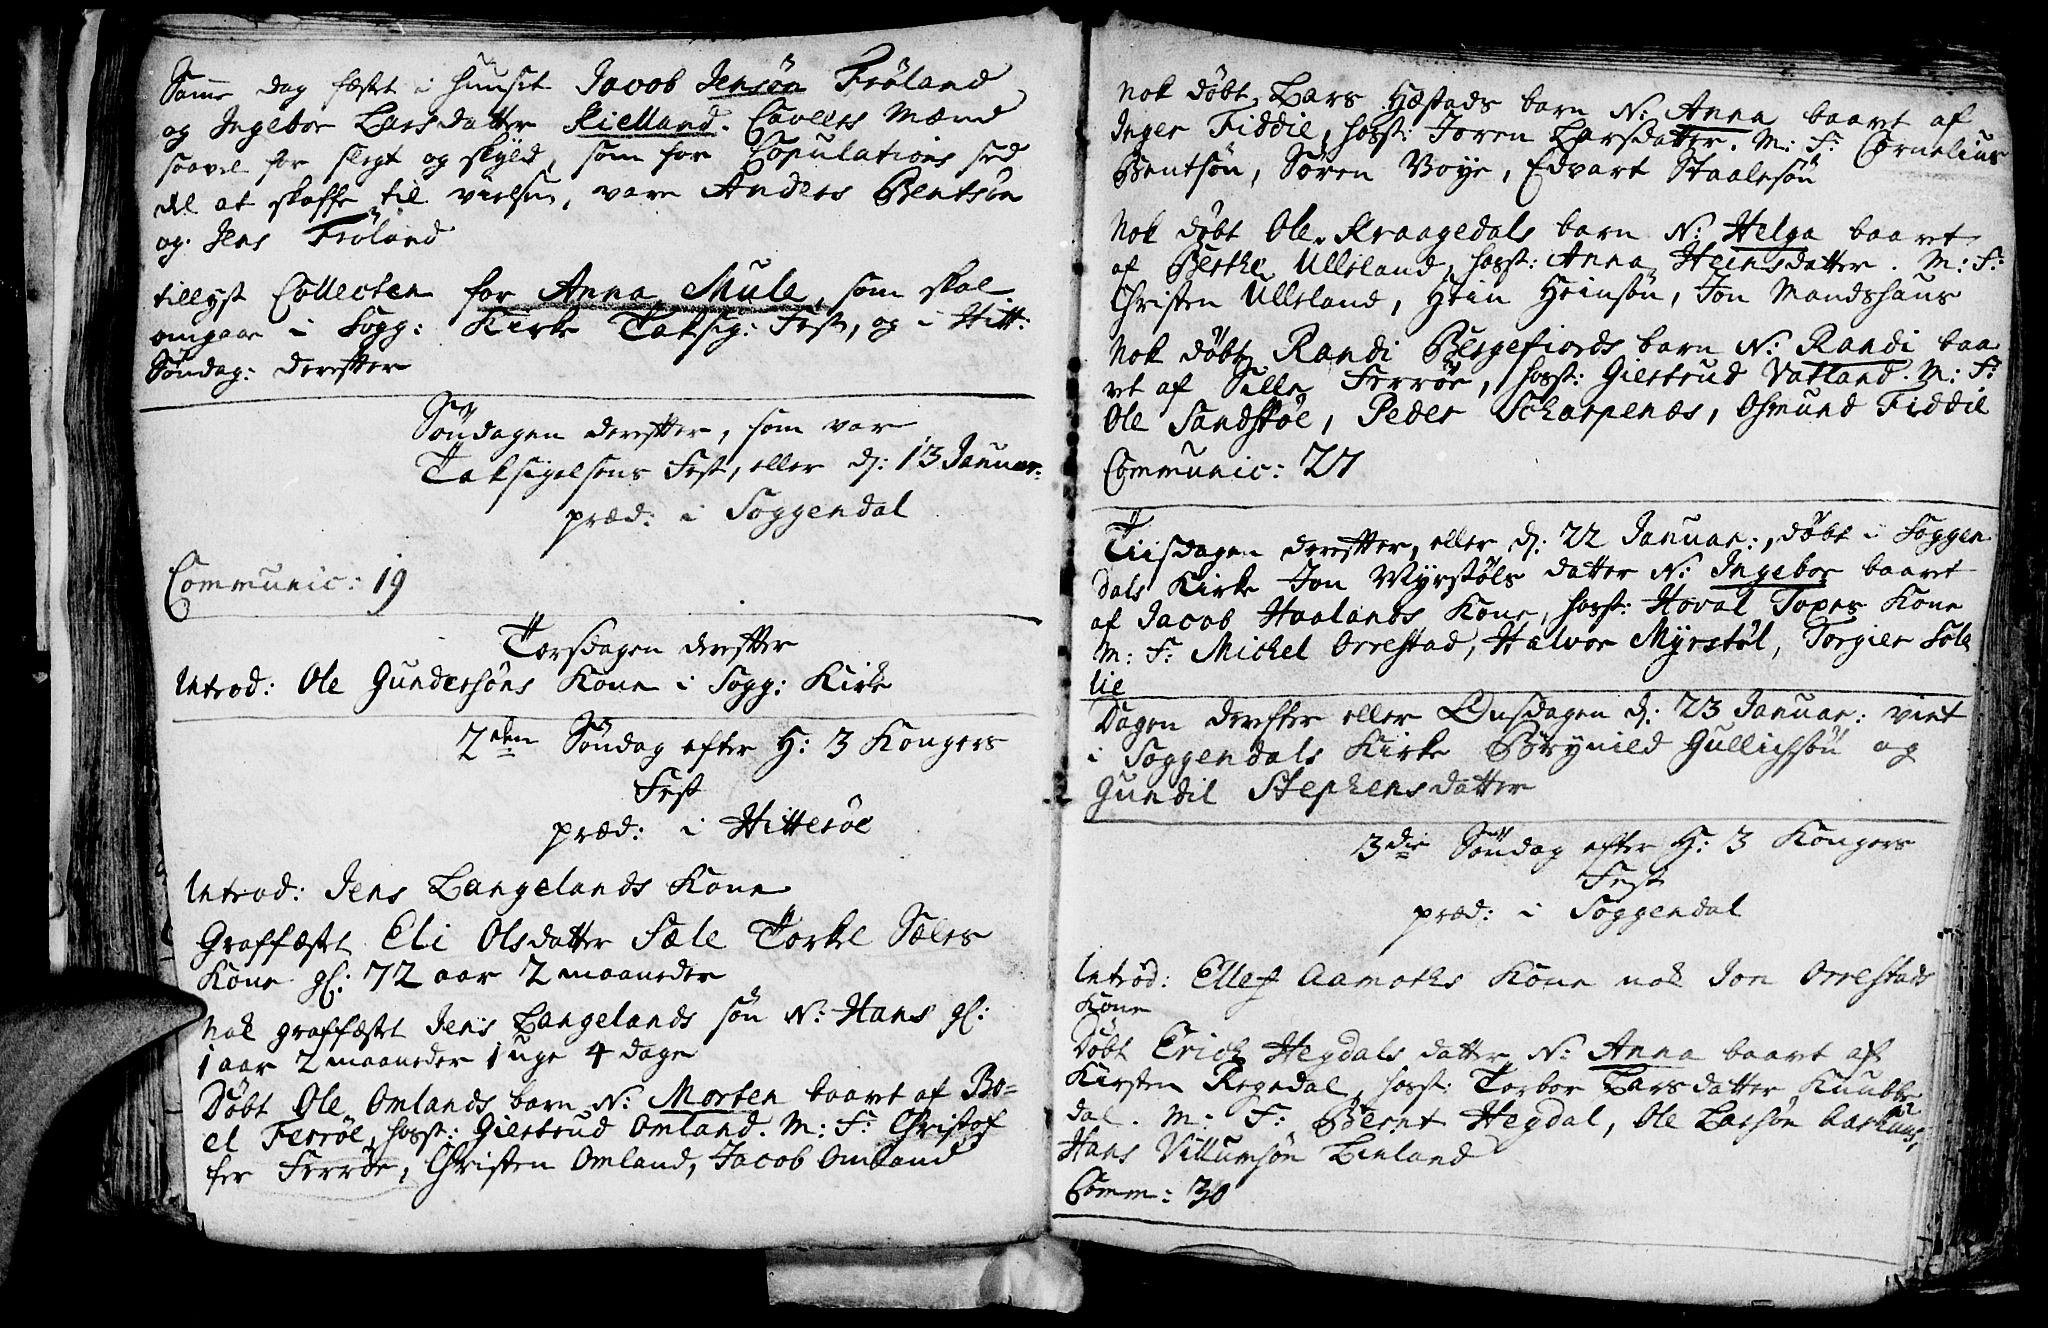 Samme dag fæstet i huuset Jacob Jensøn Frøland
og Ingebor Larsdatter Kielland. Caveers Mænd
saavel for slegt og skyld, som for Copulations sed
del at skaffe til vielsen, vare Anders Bentsøn
og Jens Frøland
tillyst Collecten for Anna Mule, som skal
omgaae i Sogg: Kirke Taksig: Fest, og i Hitt:
Søndag: derefter
Søndagen derefter, som var
Taksigelsens Fest, eller d: 13 Januar:
præd: i Soggendal
Communic: 19
Torsdagen derefter
Introd: Ole Gundersøns Kone i Sogg: Kirke
2den Søndag efter H: 3 Kongers
Fest
præd: i Hitterøe
Introd: Jens Langelands Kone
Graffæstet Eli Olsdatter Sæle Torkel Sæles
Kone gl: 72 aar 2 maaneder
Nok graffæstet Jens Langelands søn N: Hans gl:
1 aar 2 maaneder 1 uge 4 dage
Døbt Ole Omlands barn N: Morten baaret af Bo=
el Ferrøe, hosst: Giertrud Omland. M: F: Christof
fer Ferrøe, Christen Omland, Jacob Omland
Nok døbt Lars Hæstads barn N: Anna baaret af
Inger Fiddie, hosst: Joren Larsdatter. M: F: Cornelius
Bentsøn, Søren Boye, Edvart Staalesøn
Nok døbt Ole Kraagedals barn N: Helga baaret
af Berthe Ulleland, hosst: Anna Heinsdatter. M: F:
Christen Ulleland, Hein Heinsøn, Jon Mandshaus
Nok døbt Randi Bergefiords barn N: Randi baa
ret af Sille Ferrøe, hosst: Giertrud Vatland. M: F:
Ole Sandskøe, Peder Scharpenæs, Osmund Fiddie
Communic: 27
Tiisdagen derefter, eller d: 22 Januar:, døbt i Soggen
dals Kirke Jon Myrstøls datter N: Ingebor baaret
af Jacob Haalands Kone, hosst: Hoval Topes Kone
M: F: Michel Orrestad, Halvor Myrstøl, Torgier Søle
lie
Dagen derefter eller Onsdagen d: 23 Januar: viet
i Soggendals Kirke Brynild Gullichsøn og
Gundil Stephensdatter
3die Søndag efter H: 3 Kongers
Fest
præd: i Soggendal
Introd: Ellef Aamoths Kone nok Jon Orrestads
Kone
Døbt Erich Hegdals datter N: Anna baaret af
Kirsten Regedal, hosst: Torbor Larsdatter Knubbe
dal. M: F: Bernt Hegdal, Ole Larsøn Aarhuus,
Hans Villumsøn Linland
Comm: 30